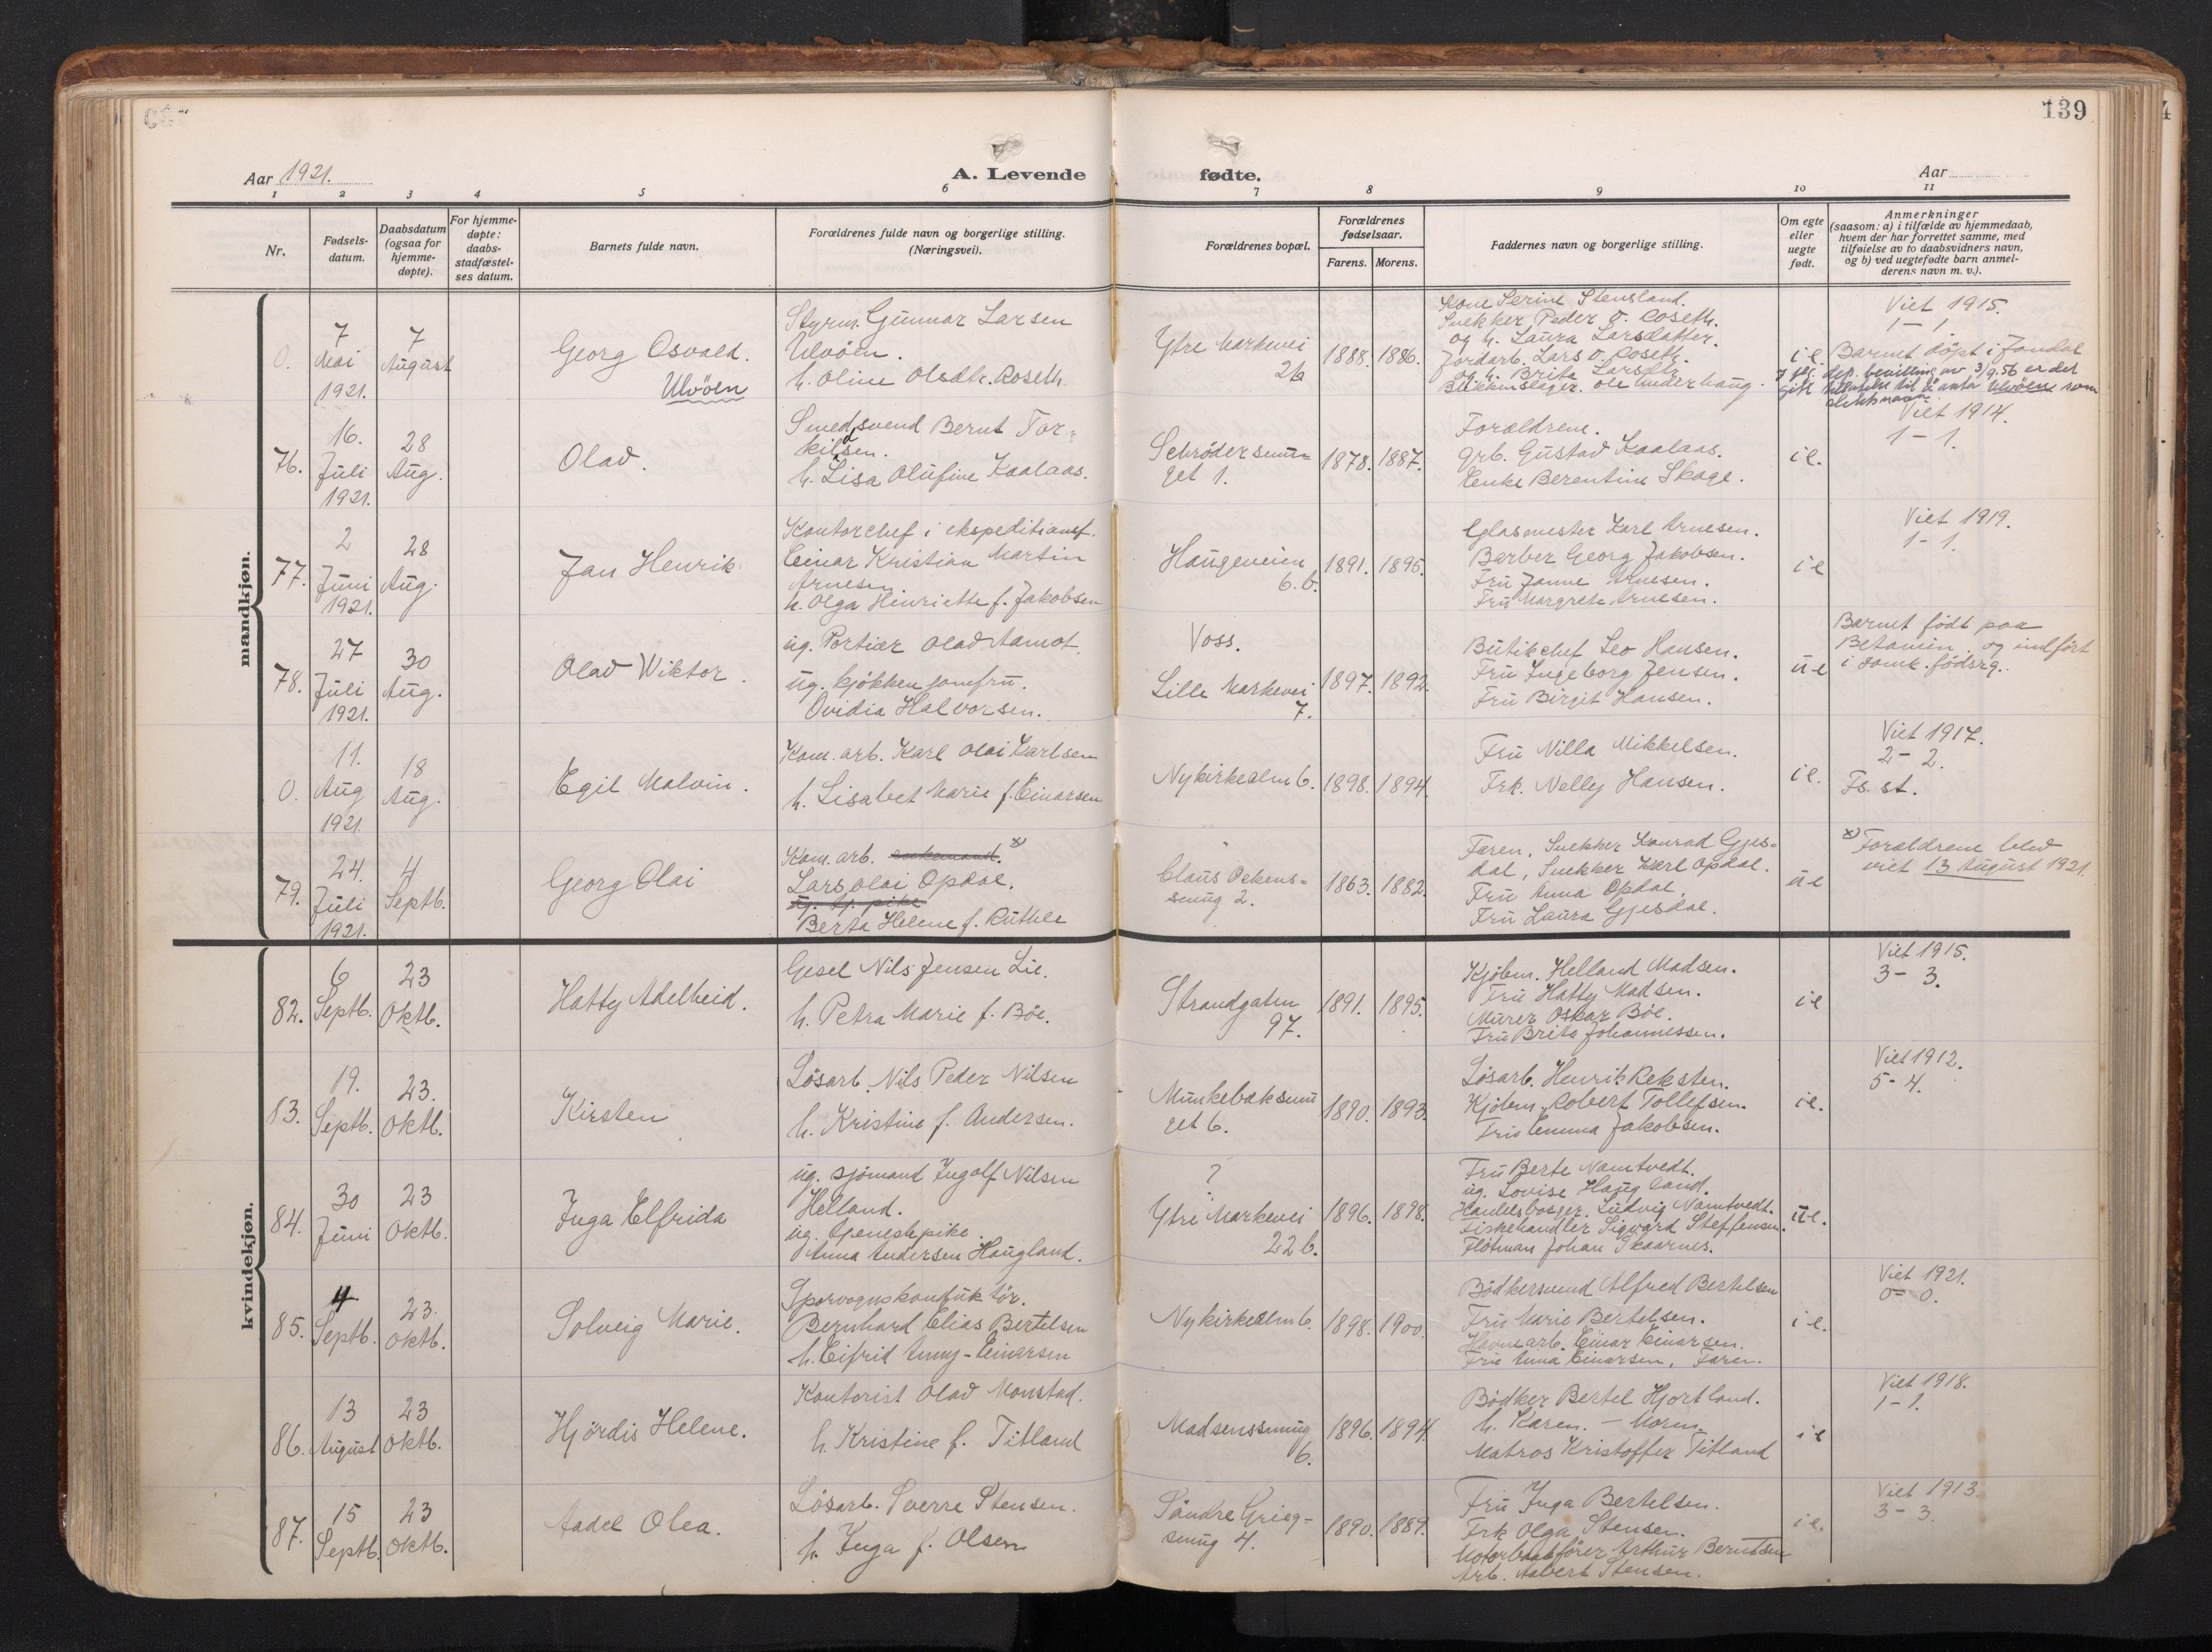 139
Aar 1921.
A. Levende fødte.
Aar
1 2 3 4 5 6 7 8 9 10 11
Nr.
Fødsels-
datum.
Daabsdatum
(ogsaa for
hjemme-
døpte).
For hjemme-
døpte:
daabs-
stadfæstel-
ses datum.
Barnets fulde navn.
Forældrenes fulde navn og borgerlige stilling.
(Næringsvei).
Forældrenes bopæl.
Forældrenes
fødselsaar.
Farens. Morens.
Faddernes navn og borgerlige stilling.
Om egte
eller
uegte
født.
Anmerkninger
(saasom: a) i tilfælde av hjemmedaab,
hvem der har forrettet samme, med
tilføielse av to daabsvidners navn,
og b) ved uegtefødte barn anmel-
derens navn m. v.).
mandkjøn.
0.
7
Mai
1921.
7
August
Georg Osvald.
Ulvøen
Styrm. Gunnar Larsen
Ulvöen.
h. Oline Olsdtr. Roseth.
Ytre Markevei
26
1888. 1886.
Kone Serine Stensland.
Snekker Peder O. Roseth.
og h. Laura Larsdatter.
Jordarb. Lars O. Roseth.
og h. Brita Larsdtr.
Blikkenslager Ole Underhaug.
ie
Viet 1915.
1 - 1.
Barnet döpt i Jondal
7 flg. dep. bevilling av 3/9.56 er det
gitt tillatelse til å anta Ulvøen som
slektsnavn.
76.
16.
Juli
1921.
28
Aug.
Olav.
Smedsvend Bernt Tor-
kildsen.
h. Lisa Olufine Kaalaas.
Schrödersmu-
get 1.
1878. 1887.
Forældrene.
grb. Gustav Kaalaas.
Enke Berentine Skage.
ie.
Viet 1914.
1 - 1.
77.
2
Juni
1921.
28
Aug.
Jan Henrik.
Kontorchef i ekspeditionsf.
Einar Kristian Martin
Arnesen
h. Olga Henriette f. Jakobsen
Haugeveien
6.b.
1891. 1895.
Glasmester Karl Arnesen.
Barber Georg Jakobsen.
Fru Janne Arnesen.
Fru Margrete Arnesen.
ie
Viet 1919.
1 - 1.
78.
27
Juli
1921.
30
Aug.
Olav Wiktor.
ug. Portier Olav Aamot.
ug. kjökkenjomfru.
Ovidia Halvorsen.
Voss.
Lille Markevei
7.
1897. 1892.
Butikchef Leo Hansen.
Fru Ingeborg Jensen.
Fru Birgit Hansen.
ue
Barnet födt paa
Betanien og indfört
i Domk. födsrg.
0.
11.
Aug
1921.
18
Aug.
Egil Malvin.
Kom. arb. Karl Olai Karlsen
h. Lisabet Marie f. Einarsen
Nykirkealm 6.
1898. 1894.
Fru Nilla Mikkelsen.
Frk. Nelly Hansen.
ie.
Viet 1917.
2 - 2.
Fs. st.
79.
24.
Juli
1921.
4
Septb.
Georg Olai
Kom. arb. enkemand. x)
Lars Olai Opdal.
ug. tj. pike
Berta Helene f. Rutlle
Claus Ockens-
smug 2.
1863. 1882.
Faren, Snekker Konrad Gjes-
dal, Snekker Karl Opdal.
Fru Anna Opdal.
Fru Laura Gjesdal.
ue
x) Forældrene blev
viet 13 August 1921.
kvindekjøn.
82.
6
Septb.
23
Oktb.
Hatty Adelheid.
Gesel Nils Jensen Lie.
h. Petra Marie f. Böe.
Strandgaten
97.
1891. 1895.
Kjöbm. Helland Madsen.
Fru Hatty Madsen.
Murer Oskar Böe.
Fru Brita Johannessen.
ie
Viet 1915.
3 - 3.
83.
19.
Septb.
23.
Oktb.
Kirsten
Lösarb. Nils Peder Nilsen
h. Kristine f. Andersen.
Munkebæksmu
get 6.
1890. 1893.
Lösarb. Henrik Reksten.
Kjöbm. Robert Tollefsen.
Fru Emma Jakobsen.
ie.
Viet 1912.
5 - 4.
84.
30
Juni
23
Oktb.
Inga Elfrida
ug. sjömand Ingolf Nilsen
Helland.
ug. tjenestepike
Anna Andersen Haugland.
?
Ytre Markevei
22 b.
1896. 1898.
Fru Berte Namtvedt.
ug. Lovise Haugland.
Handelsborger. Ludvig Namtvedt.
Fiskehandler Sigvard Steffensen.
Flötman Johan Skaarnes.
ue.
85.
4
Septb.
23.
Oktb.
Solveig Marie.
Sporvognskonduktör.
Bernhard Elias Bertelsen
h. Eifrid Anny - Einarsen
Nykirkealm 6.
1898. 1900.
Bödkersvend Alfred Bertelsen
Fru Marie Bertelsen.
Havnearb. Einar Einarsen.
Fru Anna Einarsen, Faren.
ie.
Viet 1921.
0 - 0.
86.
13
August
23
Oktb.
Hjördis Helene.
Kontorist Olav Monstad.
h. Kristine f. Titland
Madsenssmug
6.
1896. 1894.
Bödker Bertel Hjortland.
h. Karen. - Moren
Matros Kristoffer Titland
ie
Viet 1918.
1 - 1.
87.
15
Septb.
23
Oktb.
Aadel Olea.
Lösarb. Sverre Stensen.
h. Inga f. Olsen
Söndre Grieg-
smug 4.
1890. 1889.
Fru Inga Bertelsen.
Frk Olga Stensen.
Motorbaatförer Arthur Berntsen
Arb. Aabert Stensen.
ie.
Viet 1913
3 - 3.